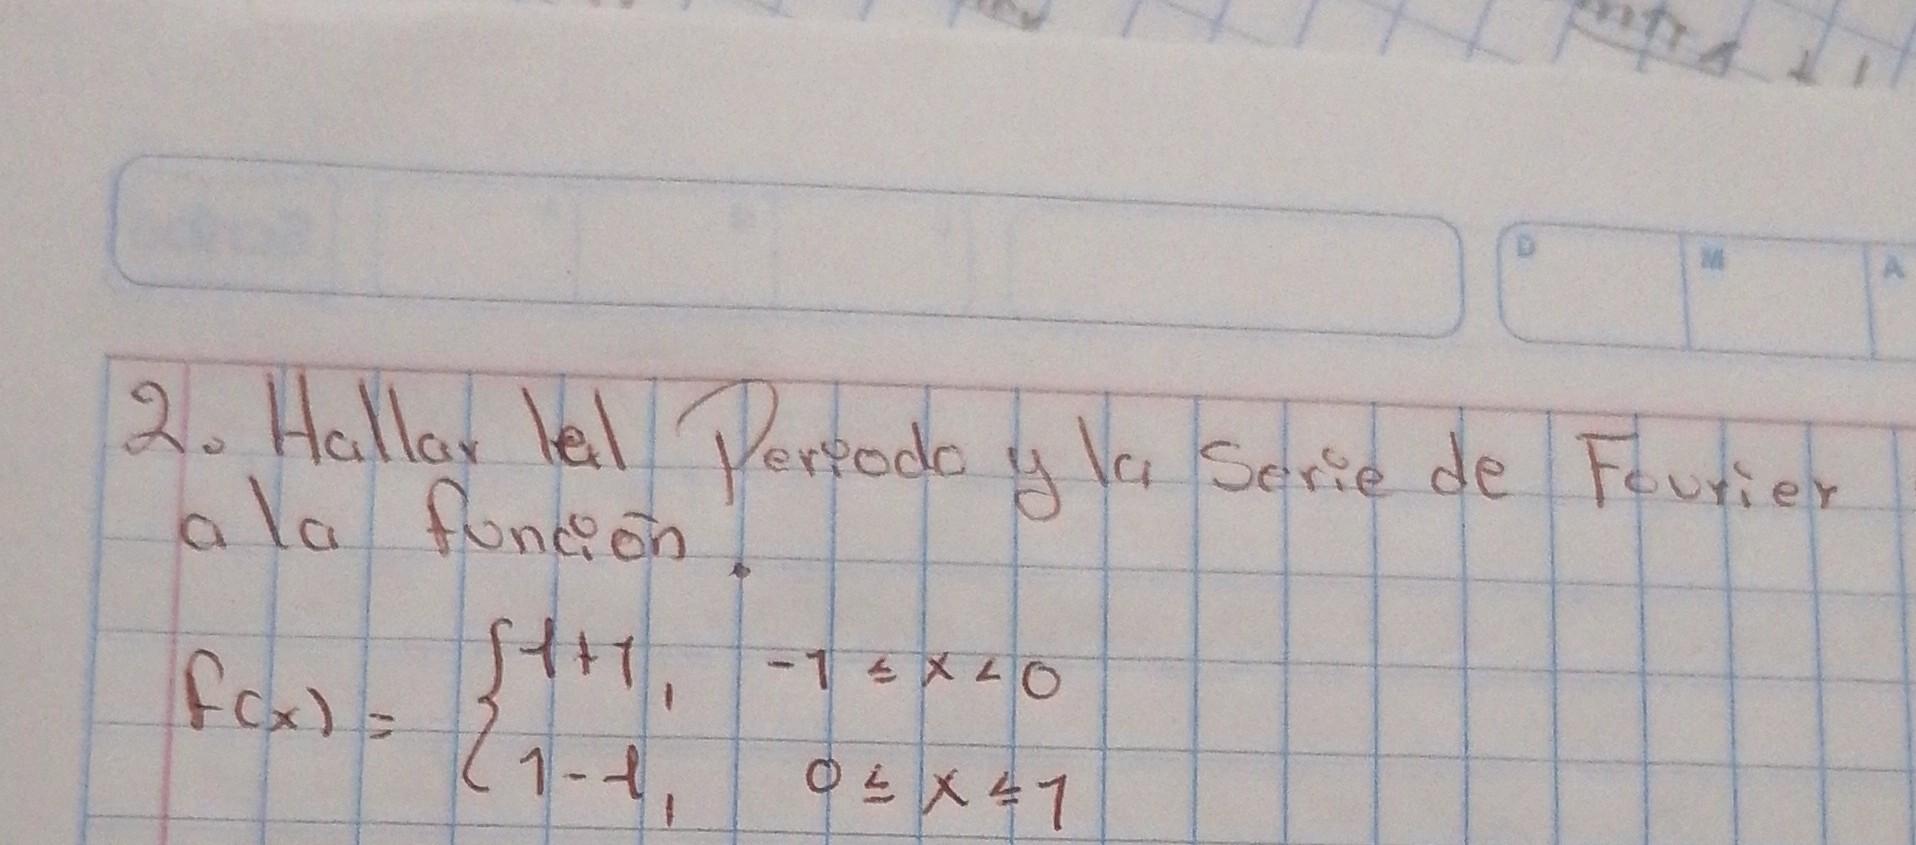 D M A
2. Hallar lel Periodo y la Serie de Fourier
a la función.
f(x) = { t+1, -1 ≤ x < 0
1-t, 0 ≤ x ≤ 1